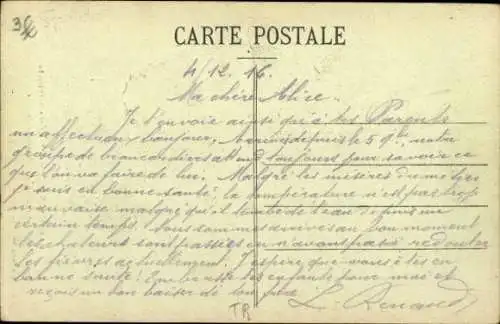 CARTE POSTALE
4/12.16.
Ma chère Alice.
Je t'envoie ainsi qu'à tes Parents
un affectueux bonjour, depuis le 5 notre
groupe de brancardiers attend toujours pour savoir ce
que l'on va faire de lui. Malgré les misères du métier
je suis en bonne santé, la température n'est pas trop
mauvaise malgré qu'il tombe de l'eau depuis un
certain temps. Nous sommes arrivés au bon moment
les chaleurs sont passées on n'avons pas à redouter
les fièvres actuellement. J'espère que vous êtes en
bonne santé! Embrasse les enfants pour moi et
reçois un bon baiser de ton
L. Renaud
TR